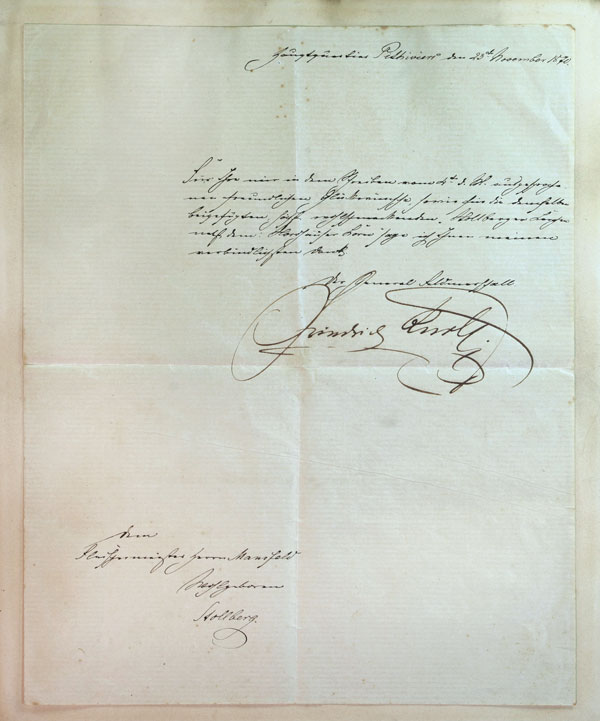 Hauptquartier Pithiviers den 25t November 1870.
Für Ihre mir in dem Schreiben vom 4t d. M. ausgesproche-
nen freundlichen Glückwünsche, sowie für die demselben
beigefügten, sehr rechtschmeckenden Stollberger
nebst dem: Nordhäuser Korn sage ich Ihnen meinen
verbindlichsten Dank
Der General Feldmarschall
Friedrich Karl.
Dem
Fleischermeister Herrn Mansfeld
Wohlgeboren
Stollberg.